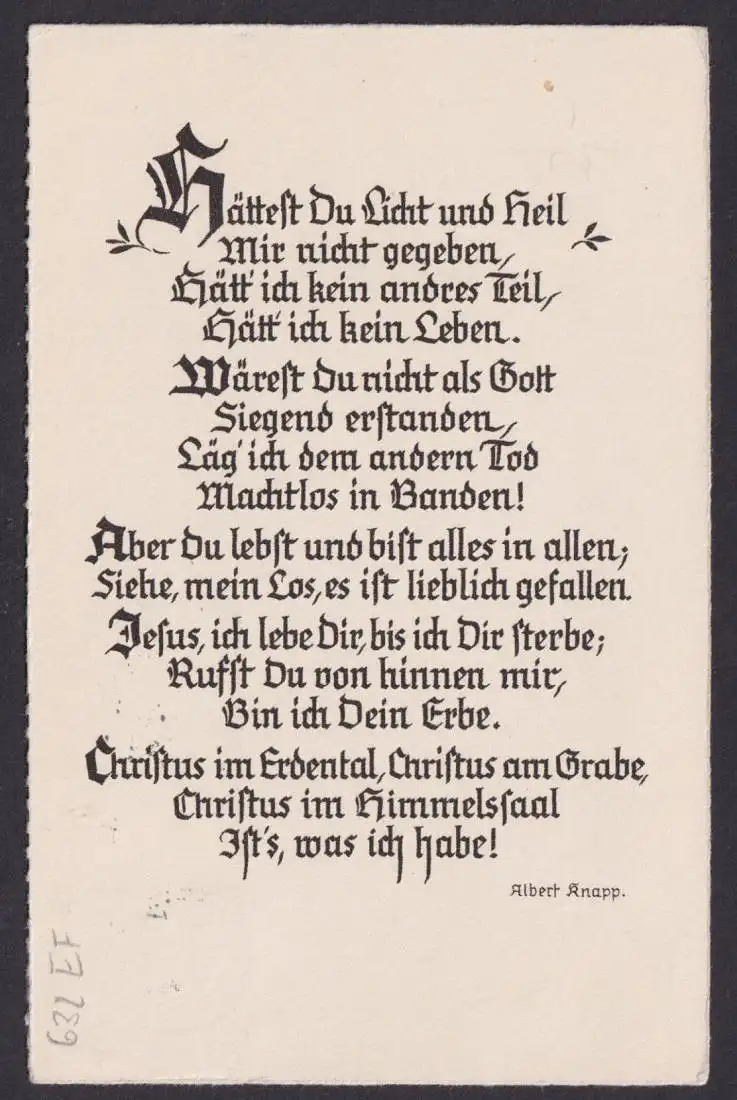 Hättest Du Licht und Heil
Mir nicht gegeben,
Hätt' ich kein andres Teil,
Hätt' ich kein Leben.
Wärest Du nicht als Gott
Siegend erstanden,
Läg' ich dem andern Tod
Machtlos in Banden!
Aber Du lebst und bist alles in allen;
Siehe, mein Los, es ist lieblich gefallen.
Jesus, ich lebe Dir, bis ich Dir sterbe;
Rufst Du von hinnen mir,
Bin ich Dein Erbe.
Christus im Erdental, Christus am Grabe,
Christus im Himmelssaal
Ist's, was ich habe!
Albert Knapp.